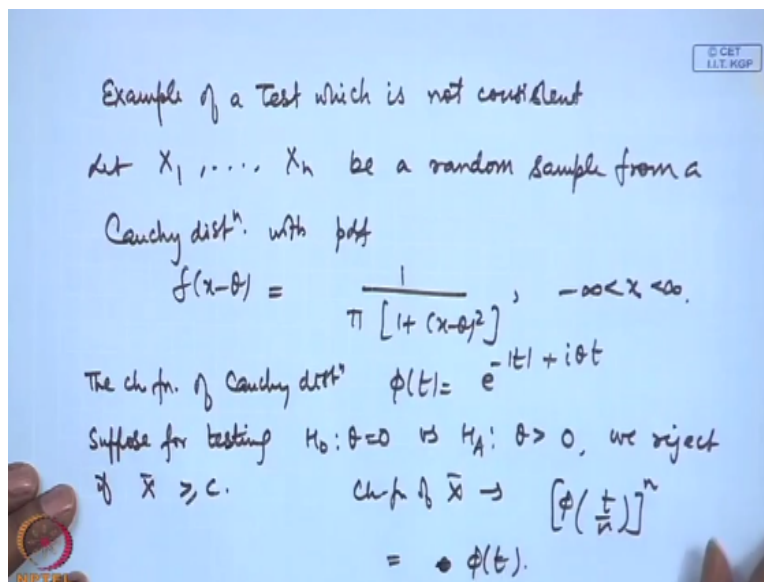 © CET
I.I.T. KGP
Example of a Test which is not consistent
Let X₁, .... Xₙ be a random sample from a
Cauchy distⁿ. with pdf
f(x-θ) = 1 / π [1+(x-θ)²] , -∞<x<∞.
The ch. fn. of Cauchy distⁿ φ(t)= e^{-|t|+iθt}
Suppose for testing H₀: θ=0 vs H_A: θ> 0, we reject
if X̄ ≥ c. Ch. fn of X̄ → [φ(t/n)]ⁿ
= φ(t).
NPTEL